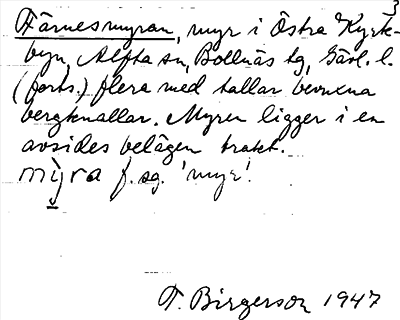 3
Tärnesmyran, myr i Östra Kyrk-
byn, Alfta sn, Bollnäs tg, Gävl. l.
(forts.) flera med tallar bevuxna
bergknallar. Myren ligger i en
avsides belägen trakt.
mỳra f. sg. 'myr'.
T. Birgerson 1947